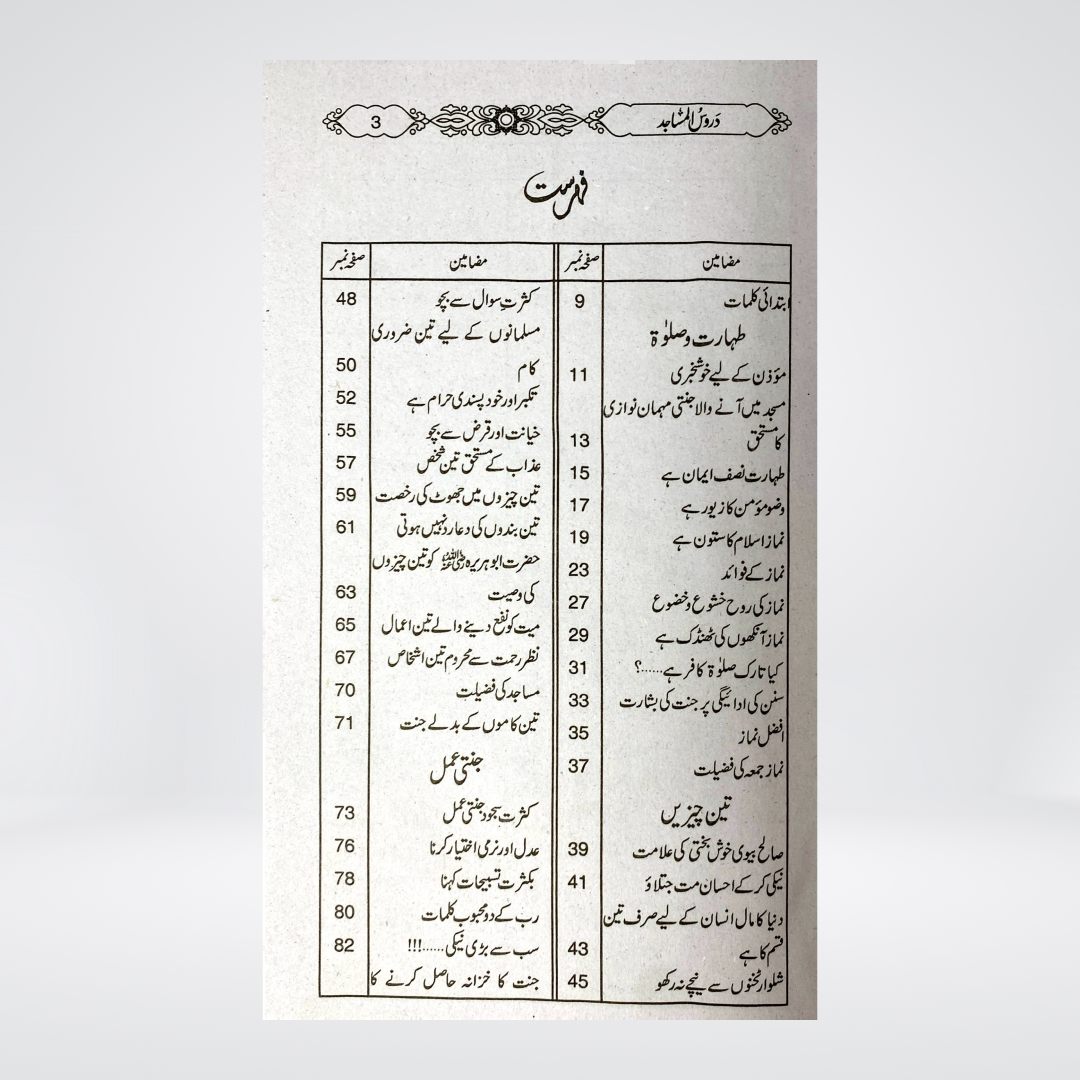 دروسُ المساجد
3
فہرست
مضامین صفحہ نمبر
ابتدائی کلمات 9
طہارت و صلوٰۃ
مؤذن کے لیے خوشخبری 11
مسجد میں آنے والا جنتی مہمان نوازی
کا مستحق 13
طہارت نصف ایمان ہے 15
وضو مؤمن کا زیور ہے 17
نماز اسلام کا ستون ہے 19
نماز کے فوائد 23
نماز کی روح خشوع و خضوع 27
نماز آنکھوں کی ٹھنڈک ہے 29
کیا تارک صلوٰۃ کافر ہے......؟ 31
سنن کی ادائیگی پر جنت کی بشارت 33
افضل نماز 35
نماز جمعہ کی فضیلت 37
تین چیزیں
صالح بیوی خوش بختی کی علامت 39
نیکی کر کے احسان مت جتلاؤ 41
دنیا کا مال انسان کے لیے صرف تین
قسم کا ہے 43
شلوار ٹخنوں سے نیچے نہ رکھو 45
مضامین صفحہ نمبر
کثرتِ سوال سے بچو 48
مسلمانوں کے لیے تین ضروری
کام 50
تکبر اور خود پسندی حرام ہے 52
خیانت اور قرض سے بچو 55
عذاب کے مستحق تین شخص 57
تین چیزوں میں جھوٹ کی رخصت 59
تین بندوں کی دعا رد نہیں ہوتی 61
حضرت ابو ہریرہ رضی اللہ عنہ کو تین چیزوں
کی وصیت 63
میت کو نفع دینے والے تین اعمال 65
نظر رحمت سے محروم تین اشخاص 67
مساجد کی فضیلت 70
تین کاموں کے بدلے جنت 71
جنتی عمل
کثرت سجود جنتی عمل 73
عدل اور نرمی اختیار کرنا 76
بکثرت تسبیحات کہنا 78
رب کے دو محبوب کلمات 80
سب سے بڑی نیکی......!!! 82
جنت کا خزانہ حاصل کرنے کا